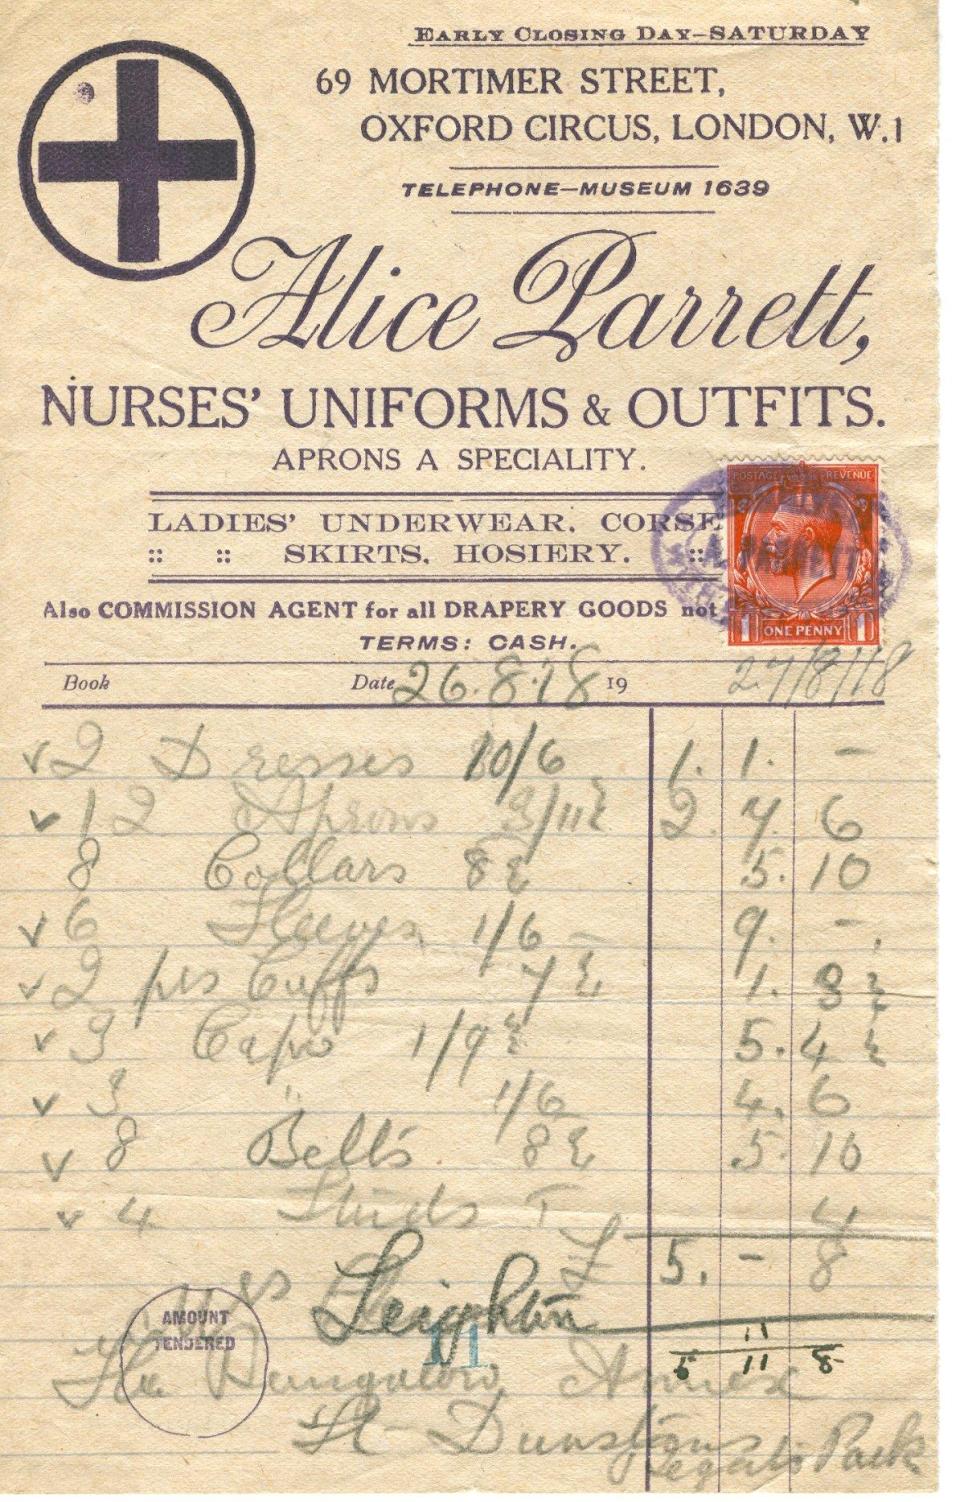 EARLY CLOSING DAY–SATURDAY
69 MORTIMER STREET,
OXFORD CIRCUS, LONDON, W.1
TELEPHONE—MUSEUM 1639
Alice Parrett,
NURSES' UNIFORMS & OUTFITS.
APRONS A SPECIALITY.
LADIES' UNDERWEAR, CORSE
:: :: SKIRTS, HOSIERY. ::
POSTAGE REVENUE
A. PARRETT
ONE PENNY
Also COMMISSION AGENT for all DRAPERY GOODS not
TERMS: CASH.
Book Date 26.8.18 19 27/8/18
✓ 2 Dresses 10/6 1. 1. –
✓ 12 Aprons 3/11½ 2. 7. 6
8 Collars 8½ 5. 10
✓ 6 Sleeves 1/6 – 9. –
✓ 2 prs Cuffs 7½ 1. 3½
✓ 3 Caps 1/9½ 5. 4½
✓ 3 " 1/6 4. 6
✓ 8 Belts 8½ 5. 10
✓ 4 Studs 1 4
£ 5. – 8
Leighton
AMOUNT
TENDERED
11
11
5 11 8
The Bungalow Annex
St Dunstans
Regents Park